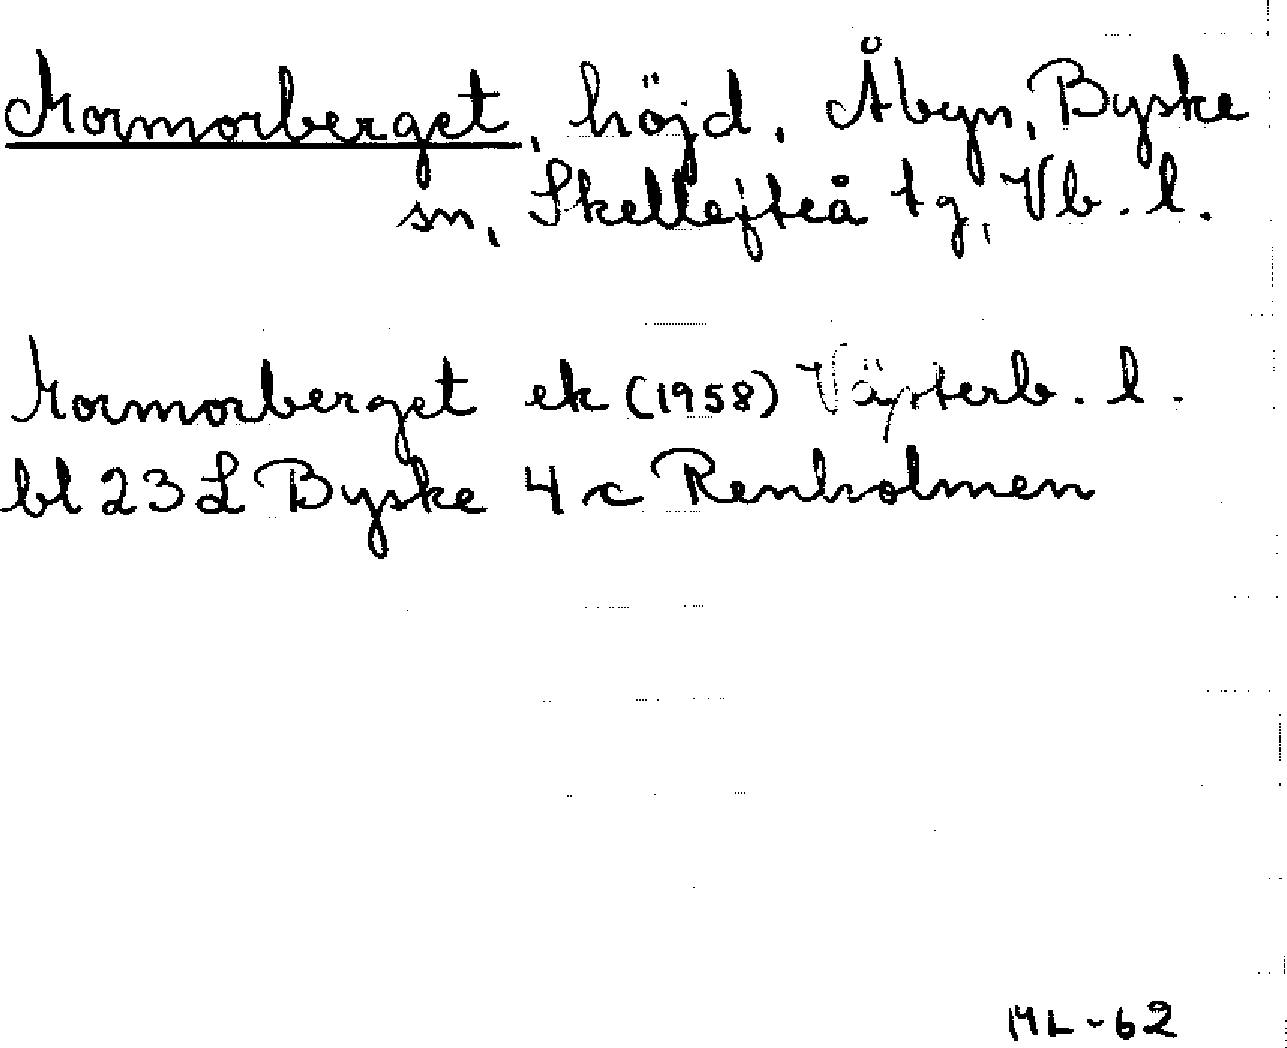 Mormorberget, höjd. Åbyn, Byske
sn, Skellefteå tg, Vb. l.
Mormorberget ek (1958) Västerb. l.
bl 23 L Byske 4 c Renholmen
ML-62